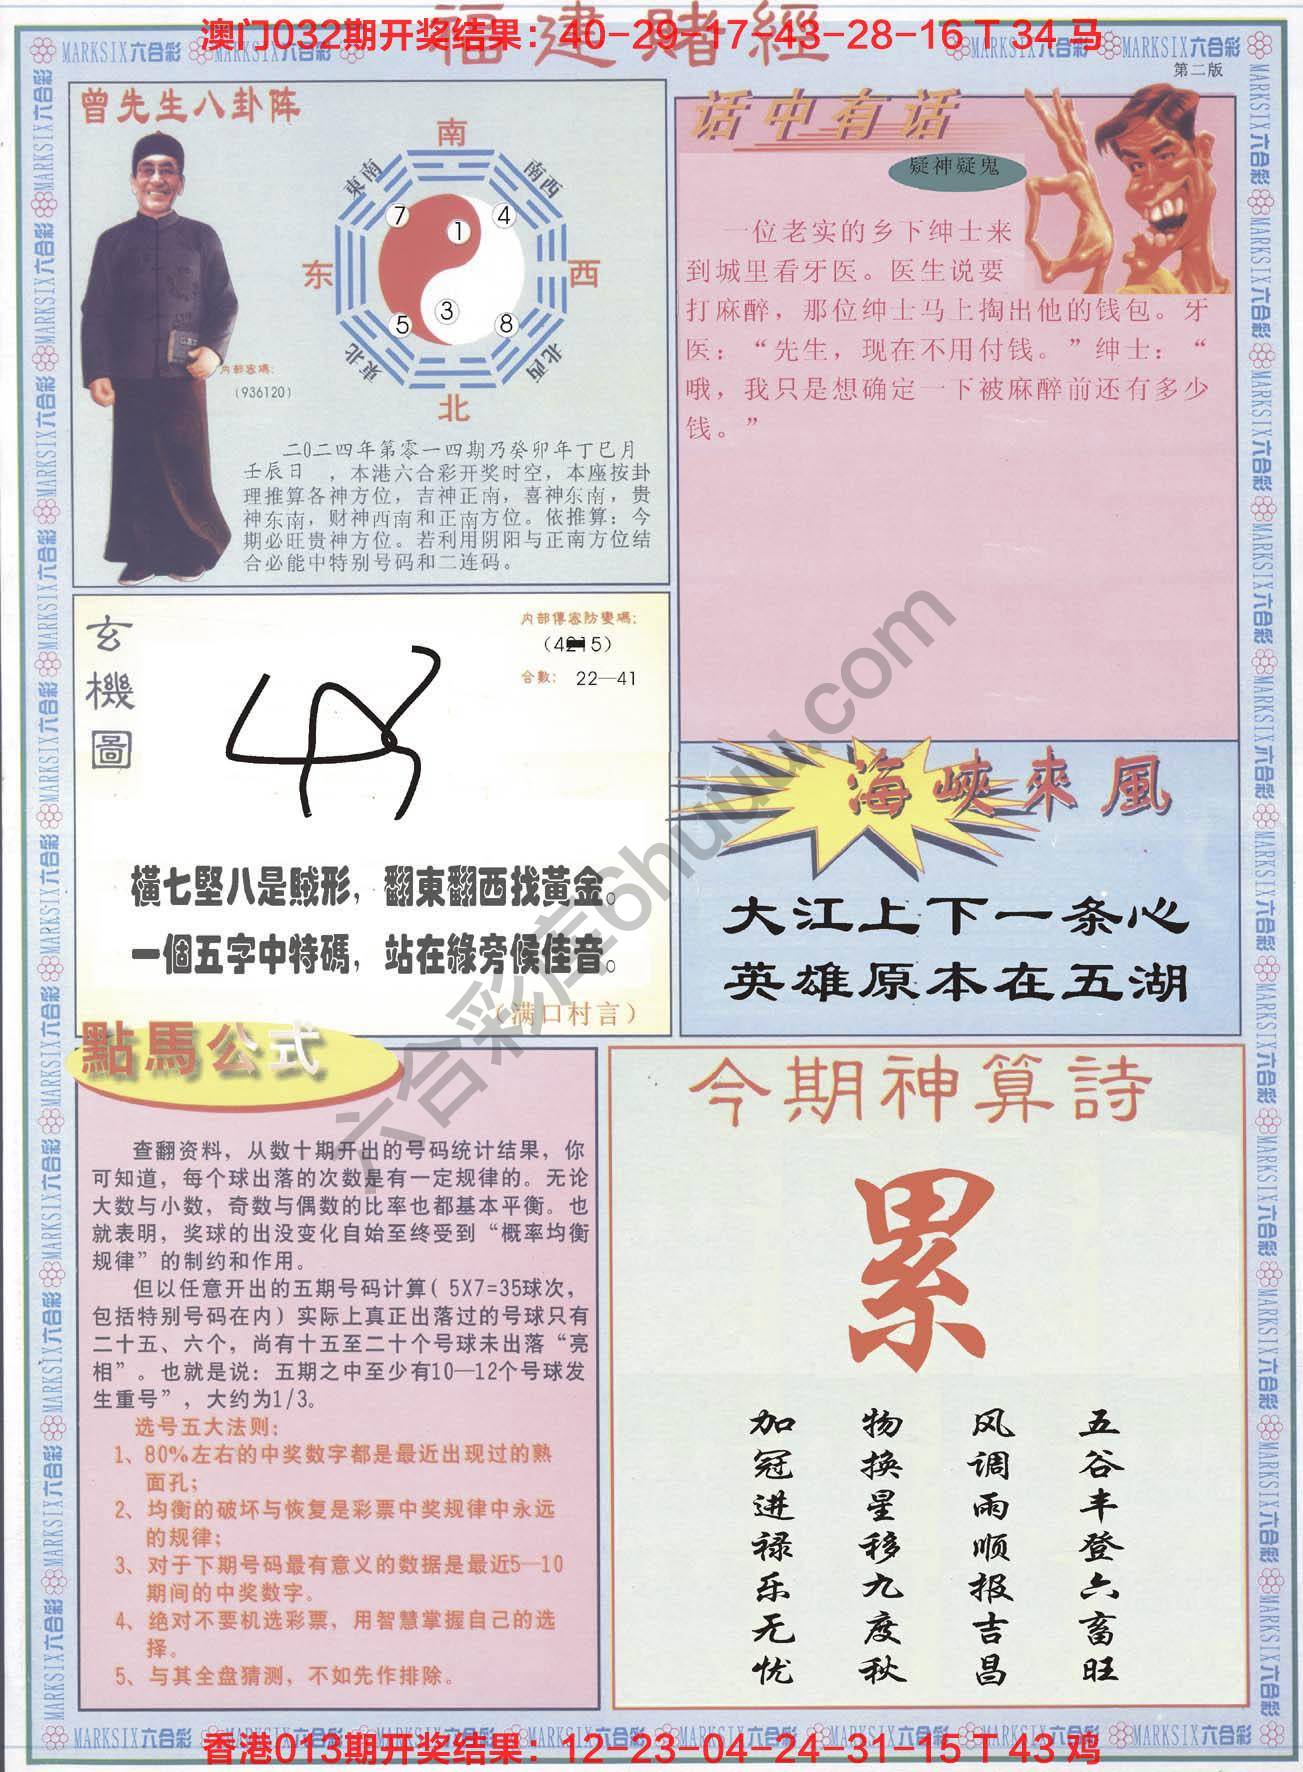 福建賭經
澳门032期开奖结果：40-29-17-43-28-16 T 34 马
MARKSIX六合彩
第二版
曾先生八卦阵
南
東南
南西
7
1
4
东
西
3
5
8
東北
北西
北
内部密碼：
(936120)
二0二四年第零一四期乃癸卯年丁巳月
壬辰日 ，本港六合彩开奖时空，本座按卦
理推算各神方位，吉神正南，喜神东南，贵
神东南，财神西南和正南方位。依推算：今
期必旺贵神方位。若利用阴阳与正南方位结
合必能中特别号码和二连码。
话中有话
疑神疑鬼
一位老实的乡下绅士来
到城里看牙医。医生说要
打麻醉，那位绅士马上掏出他的钱包。牙
医：“先生，现在不用付钱。”绅士：“
哦，我只是想确定一下被麻醉前还有多少
钱。”
玄機圖
内部傳密防變碼：
合數： 22—41
橫七堅八是賊形，翻東翻西找黃金。
一個五字中特碼，站在綠旁候佳音。
（满口村言）
海峽來風
大江上下一条心
英雄原本在五湖
點馬公式
查翻资料，从数十期开出的号码统计结果，你
可知道，每个球出落的次数是有一定规律的。无论
大数与小数，奇数与偶数的比率也都基本平衡。也
就表明，奖球的出没变化自始至终受到“概率均衡
规律”的制约和作用。
但以任意开出的五期号码计算( 5X7=35球次，
包括特别号码在内）实际上真正出落过的号球只有
二十五、六个，尚有十五至二十个号球未出落“亮
相”。也就是说：五期之中至少有10—12个号球发
生重号”，大约为1/3。
选号五大法则：
1、80%左右的中奖数字都是最近出现过的熟
面孔；
2、均衡的破坏与恢复是彩票中奖规律中永远
的规律；
3、对于下期号码最有意义的数据是最近5—10
期间的中奖数字。
4、绝对不要机选彩票，用智慧掌握自己的选
择。
5、与其全盘猜测，不如先作排除。
今期神算詩
累
五谷丰登六畜旺
风调雨顺报吉昌
物换星移九度秋
加冠进禄乐无忧
六合彩库6huuu.com
MARKSIX六合彩
香港013期开奖结果：12-23-04-24-31-15 T 43 鸡